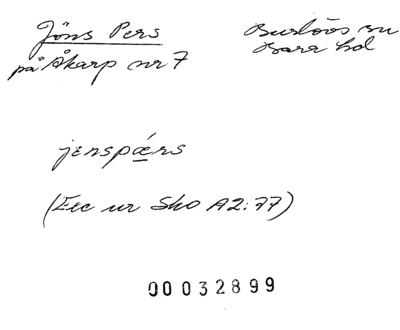 Jöns Pers
Burlövs sn
på Åkarp nr 7
Bara hd
jenspærs
(Exc ur Sko A2:77)
00032899